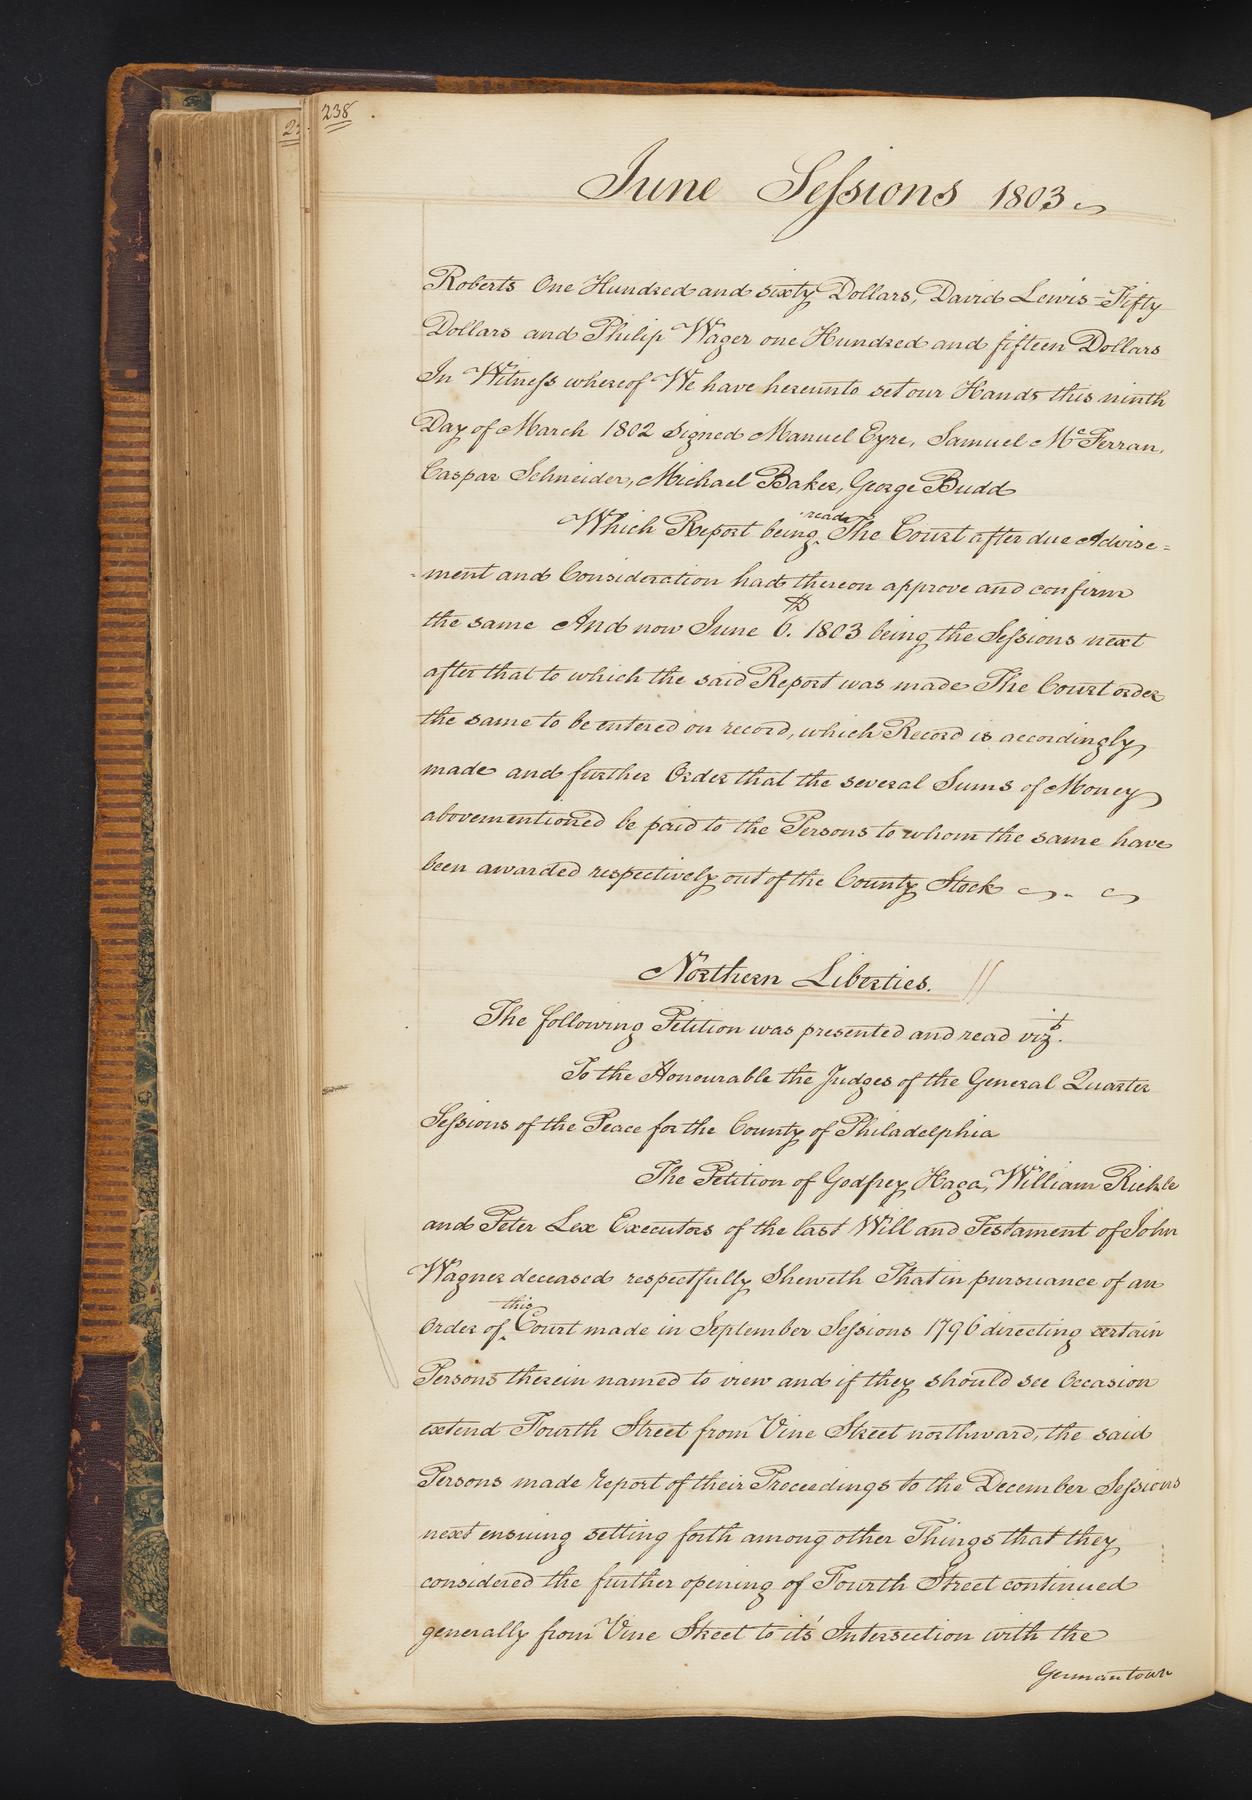 238
June Sessions 1803
Roberts One Hundred and sixty Dollars, David Lewis Fifty
Dollars and Philip Wager one Hundred and fifteen Dollars
In Witness whereof We have hereunto set our Hands this ninth
Day of March 1802 Signed Manuel Eyre, Samuel McFerran,
Caspar Schneider, Michael Baker, George Budd
read
Which Report being ^ The Court after due Advise=
-ment and Consideration had thereon approve and confirm
the same And now June 6.th 1803 being the Sessions next
after that to which the said Report was made The Court order
the same to be entered on record, which Record is accordingly
made and further Order that the several Sums of Money
abovementioned be paid to the Persons to whom the same have
been awarded respectively out of the County Stock
Northern Liberties. //
The following Petition was presented and read vizt.
To the Honourable the Judges of the General Quarter
Sessions of the Peace for the County of Philadelphia
The Petition of Godfrey Haga, William Rickle
and Peter Lex Executors of the last Will and Testament of John
Wagner deceased respectfully Sheweth That in pursuance of an
this
Order of ^ Court made in September Sessions 1796 directing certain
Persons therein named to view and if they should see Occasion
extend Fourth Street from Vine Street northward, the said
Persons made report of their Proceedings to the December Sessions
next ensuing setting forth among other Things that they
considered the further opening of Fourth Street continued
generally from Vine Street to it's Intersection with the
Germantown